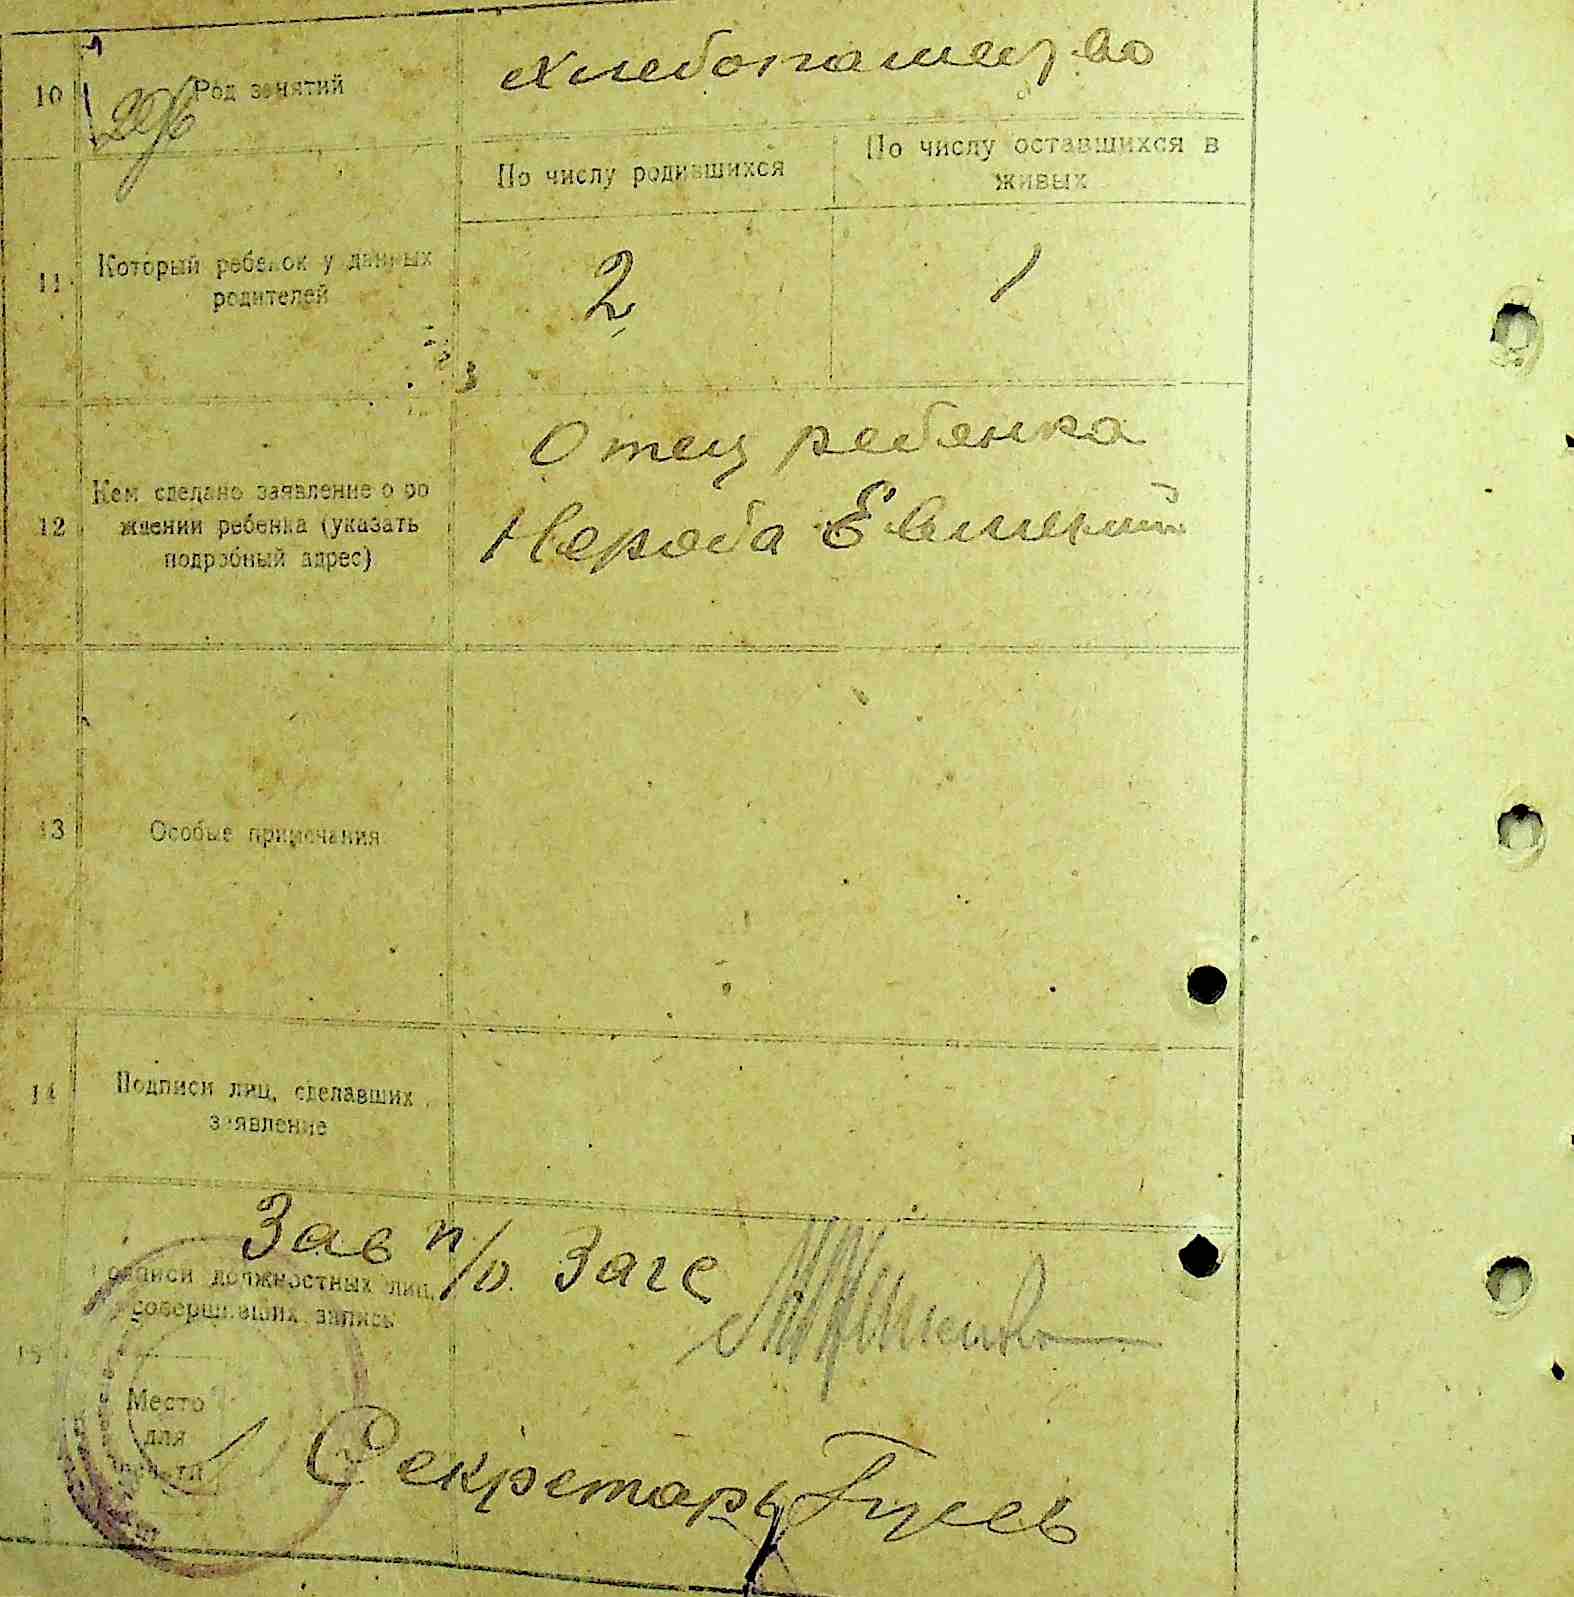 10
Род занятий
Хлебопашество
296
По числу родившихся
По числу оставшихся в
живых
11
Который ребенок у данных
родителей
2
1
12
Кем сделано заявление о ро
ждении ребенка (указать
подробный адрес)
Отец ребенка
Нероба Евгений
13
Особые примечания
14
Подписи лиц, сделавших
заявление
Зав п/о. Загс
Подписи должностных лиц,
совершивших запись
15
Место
для
печати
Секретарь Гусев